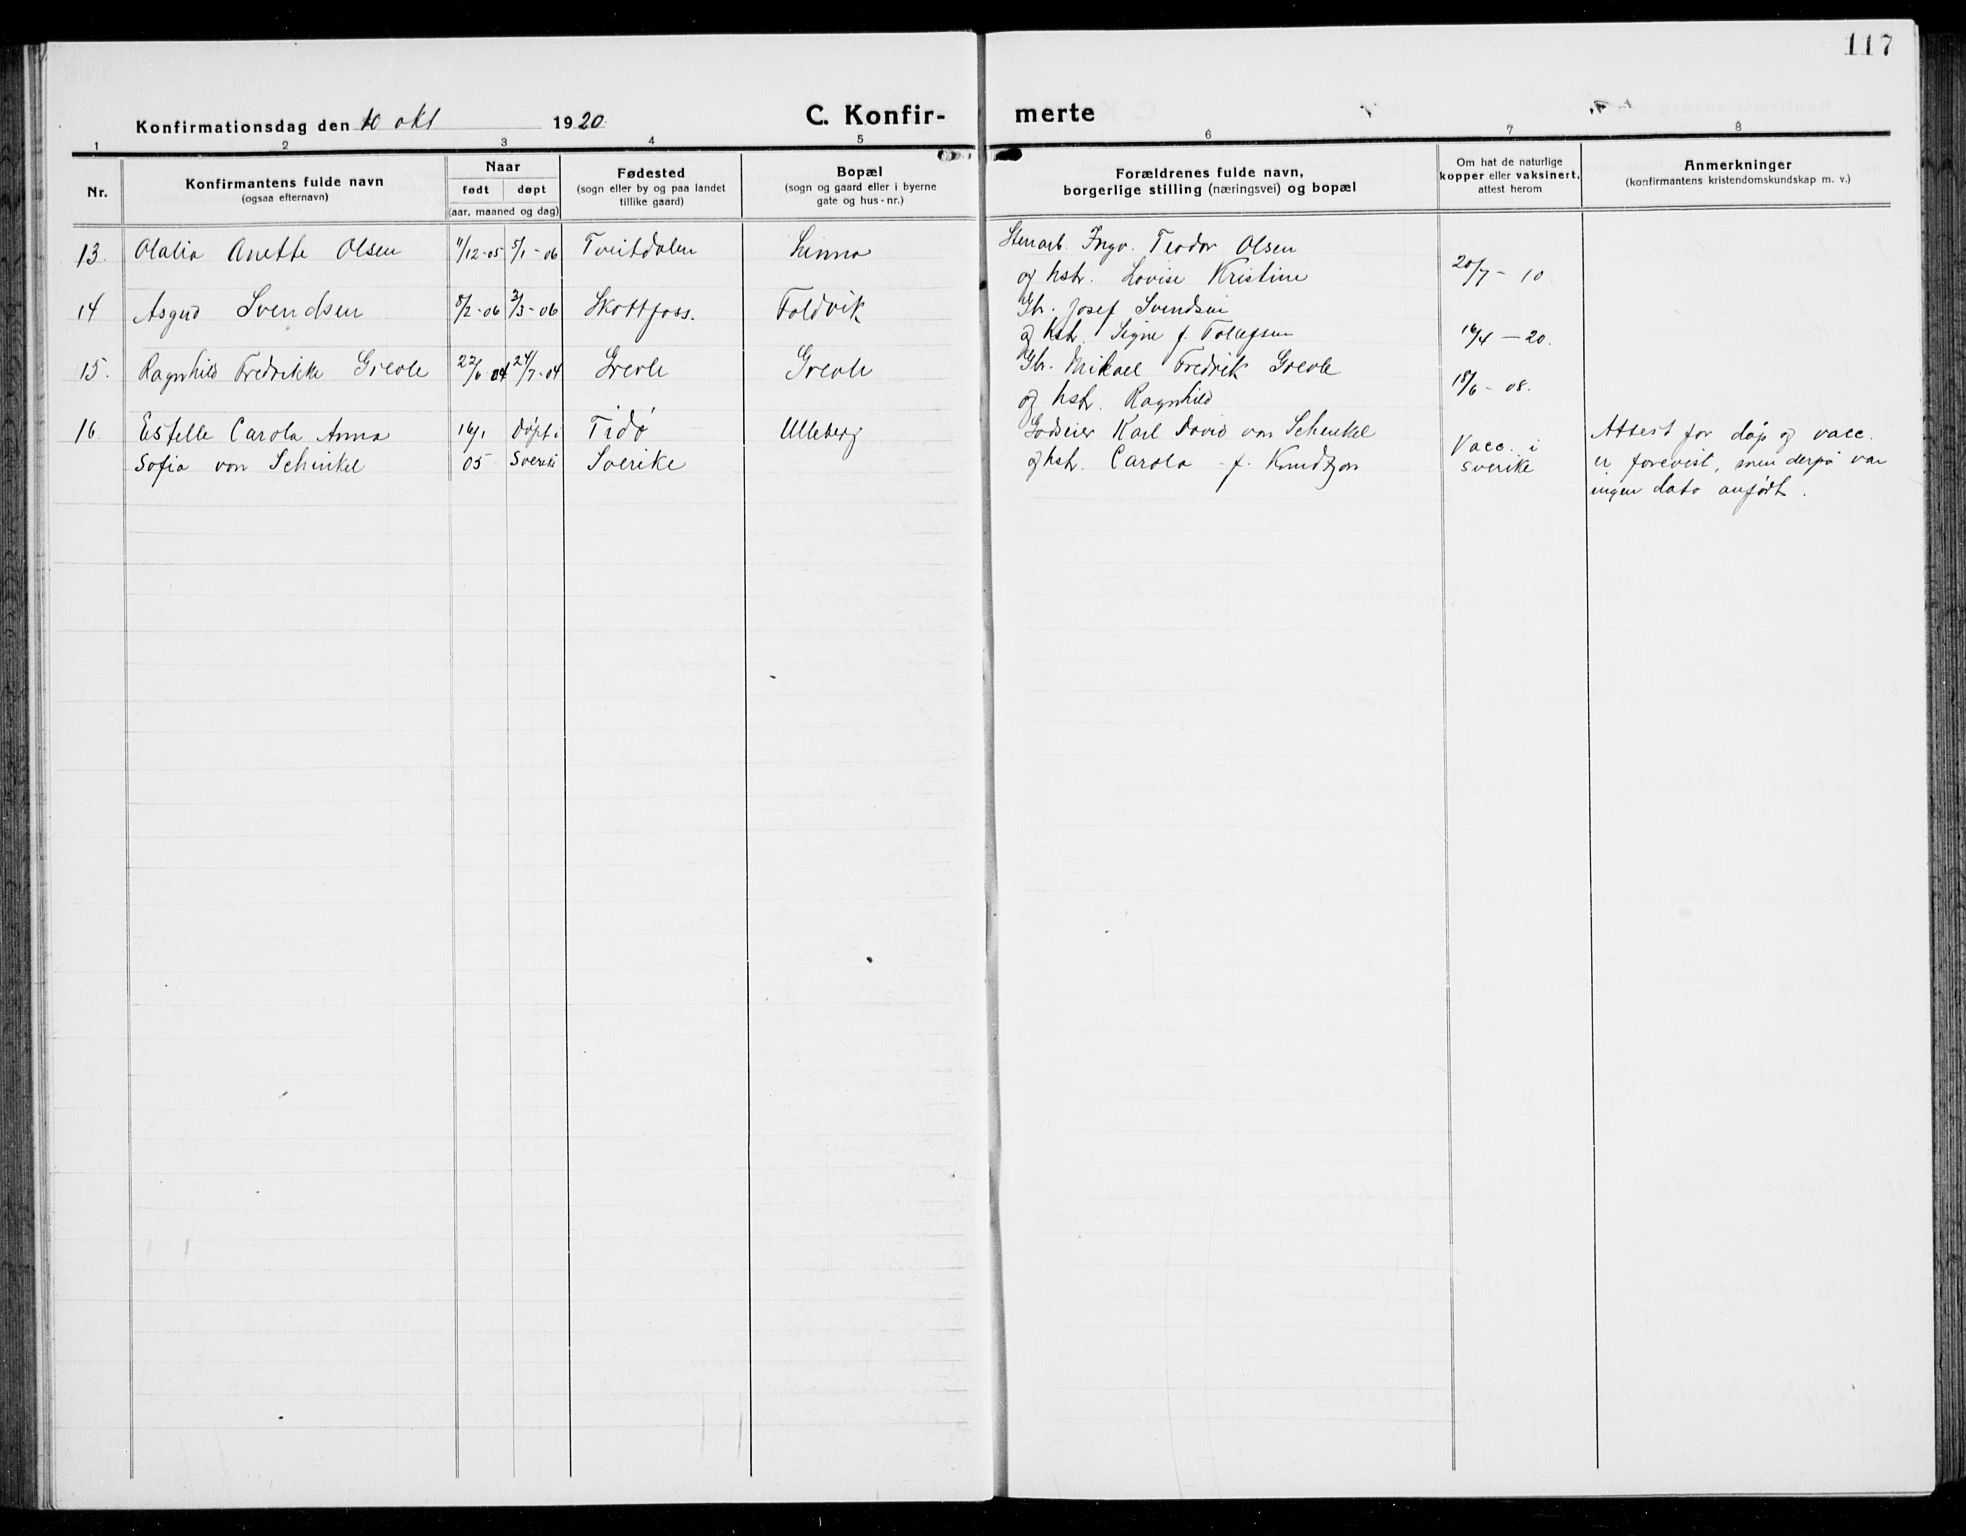 117
Konfirmationsdag den 10 okt 1920.
C. Konfir-
merte
1 2 3 4 5 6 7 8
Nr.
Konfirmantens fulde navn
(ogsaa efternavn)
Naar
født døpt
(aar, maaned og dag)
Fødested
(sogn eller by og paa landet
tillike gaard)
Bopæl
(sogn og gaard eller i byerne
gate og hus-nr.)
Forældrenes fulde navn,
borgerlige stilling (næringsvei) og bopæl
Om hat de naturlige
kopper eller vaksinert,
attest herom
Anmerkninger
(konfirmantens kristendomskundskap m. v.)
13. Olalia Anette Olsen 11/12-05 5/1-06 Tveitdalen Linna Stenarb. Ingv. Teodor Olsen
og hstr. Lovise Kristine 20/7-10
14 Asgerd Svendsen 8/2-06 3/3-06 Skotfoss. Foldvik Gbr. Josef Svendsen
og hstr. Signe f. Tollefsen 16/4-20.
15. Ragnhild Fredrikke Grevle 22/6 04 24/7-04 Grevle Grevle Gbr. Mikael Fredrik Grevle
og hstr. Ragnhild 18/6-08.
16. Estelle Carola Anna 16/1 Døpt i Tidø Ulleberg Godseier Karl David von Schinkel Vacc. i Attest for dåp og vacc.
Sofia von Schinkel 05 Sverike Sverike og hstr. Carola f. Knudtzon Sverike er forevist, men derpå var
ingen dato anført.